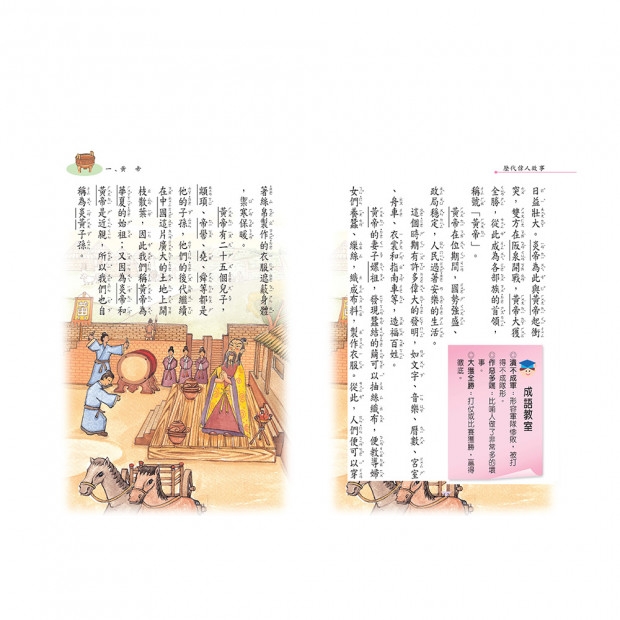 歷代偉人故事
日益壯大。炎帝為此與黃帝起衝
突，雙方在阪泉開戰，黃帝大獲
全勝，從此成為各部族的首領，
稱號「黃帝」。
黃帝在位期間，國勢強盛、
政局穩定，人民過著安樂的生活。
這個時期有許多偉大的發明，如文字、音樂、曆數、宮室
、舟車、衣裳和指南車等，造福百姓。
黃帝的妻子嫘祖，發現蠶結的繭可以抽絲織布，便教導婦
女們養蠶、繅絲，織成布料，製作衣服。從此，人們便可以穿
成語教室
◎潰不成軍：形容軍隊慘敗，被打
得不成隊形。
◎作惡多端：比喻人做了非常多的壞
事。
◎大獲全勝：打仗或比賽獲勝，贏得
徹底。
一、黃 帝
著絲帛製作的衣服遮蔽身體
，禦寒保暖。
黃帝有二十五個兒子，
顓頊、帝嚳、堯、舜等都是
他的子孫，他們的後代繼續
在中國這片廣大的土地上開
枝散葉，因此我們稱黃帝為
華夏的始祖；又因為炎帝和
黃帝是近親，所以我們也自
稱為炎黃子孫。